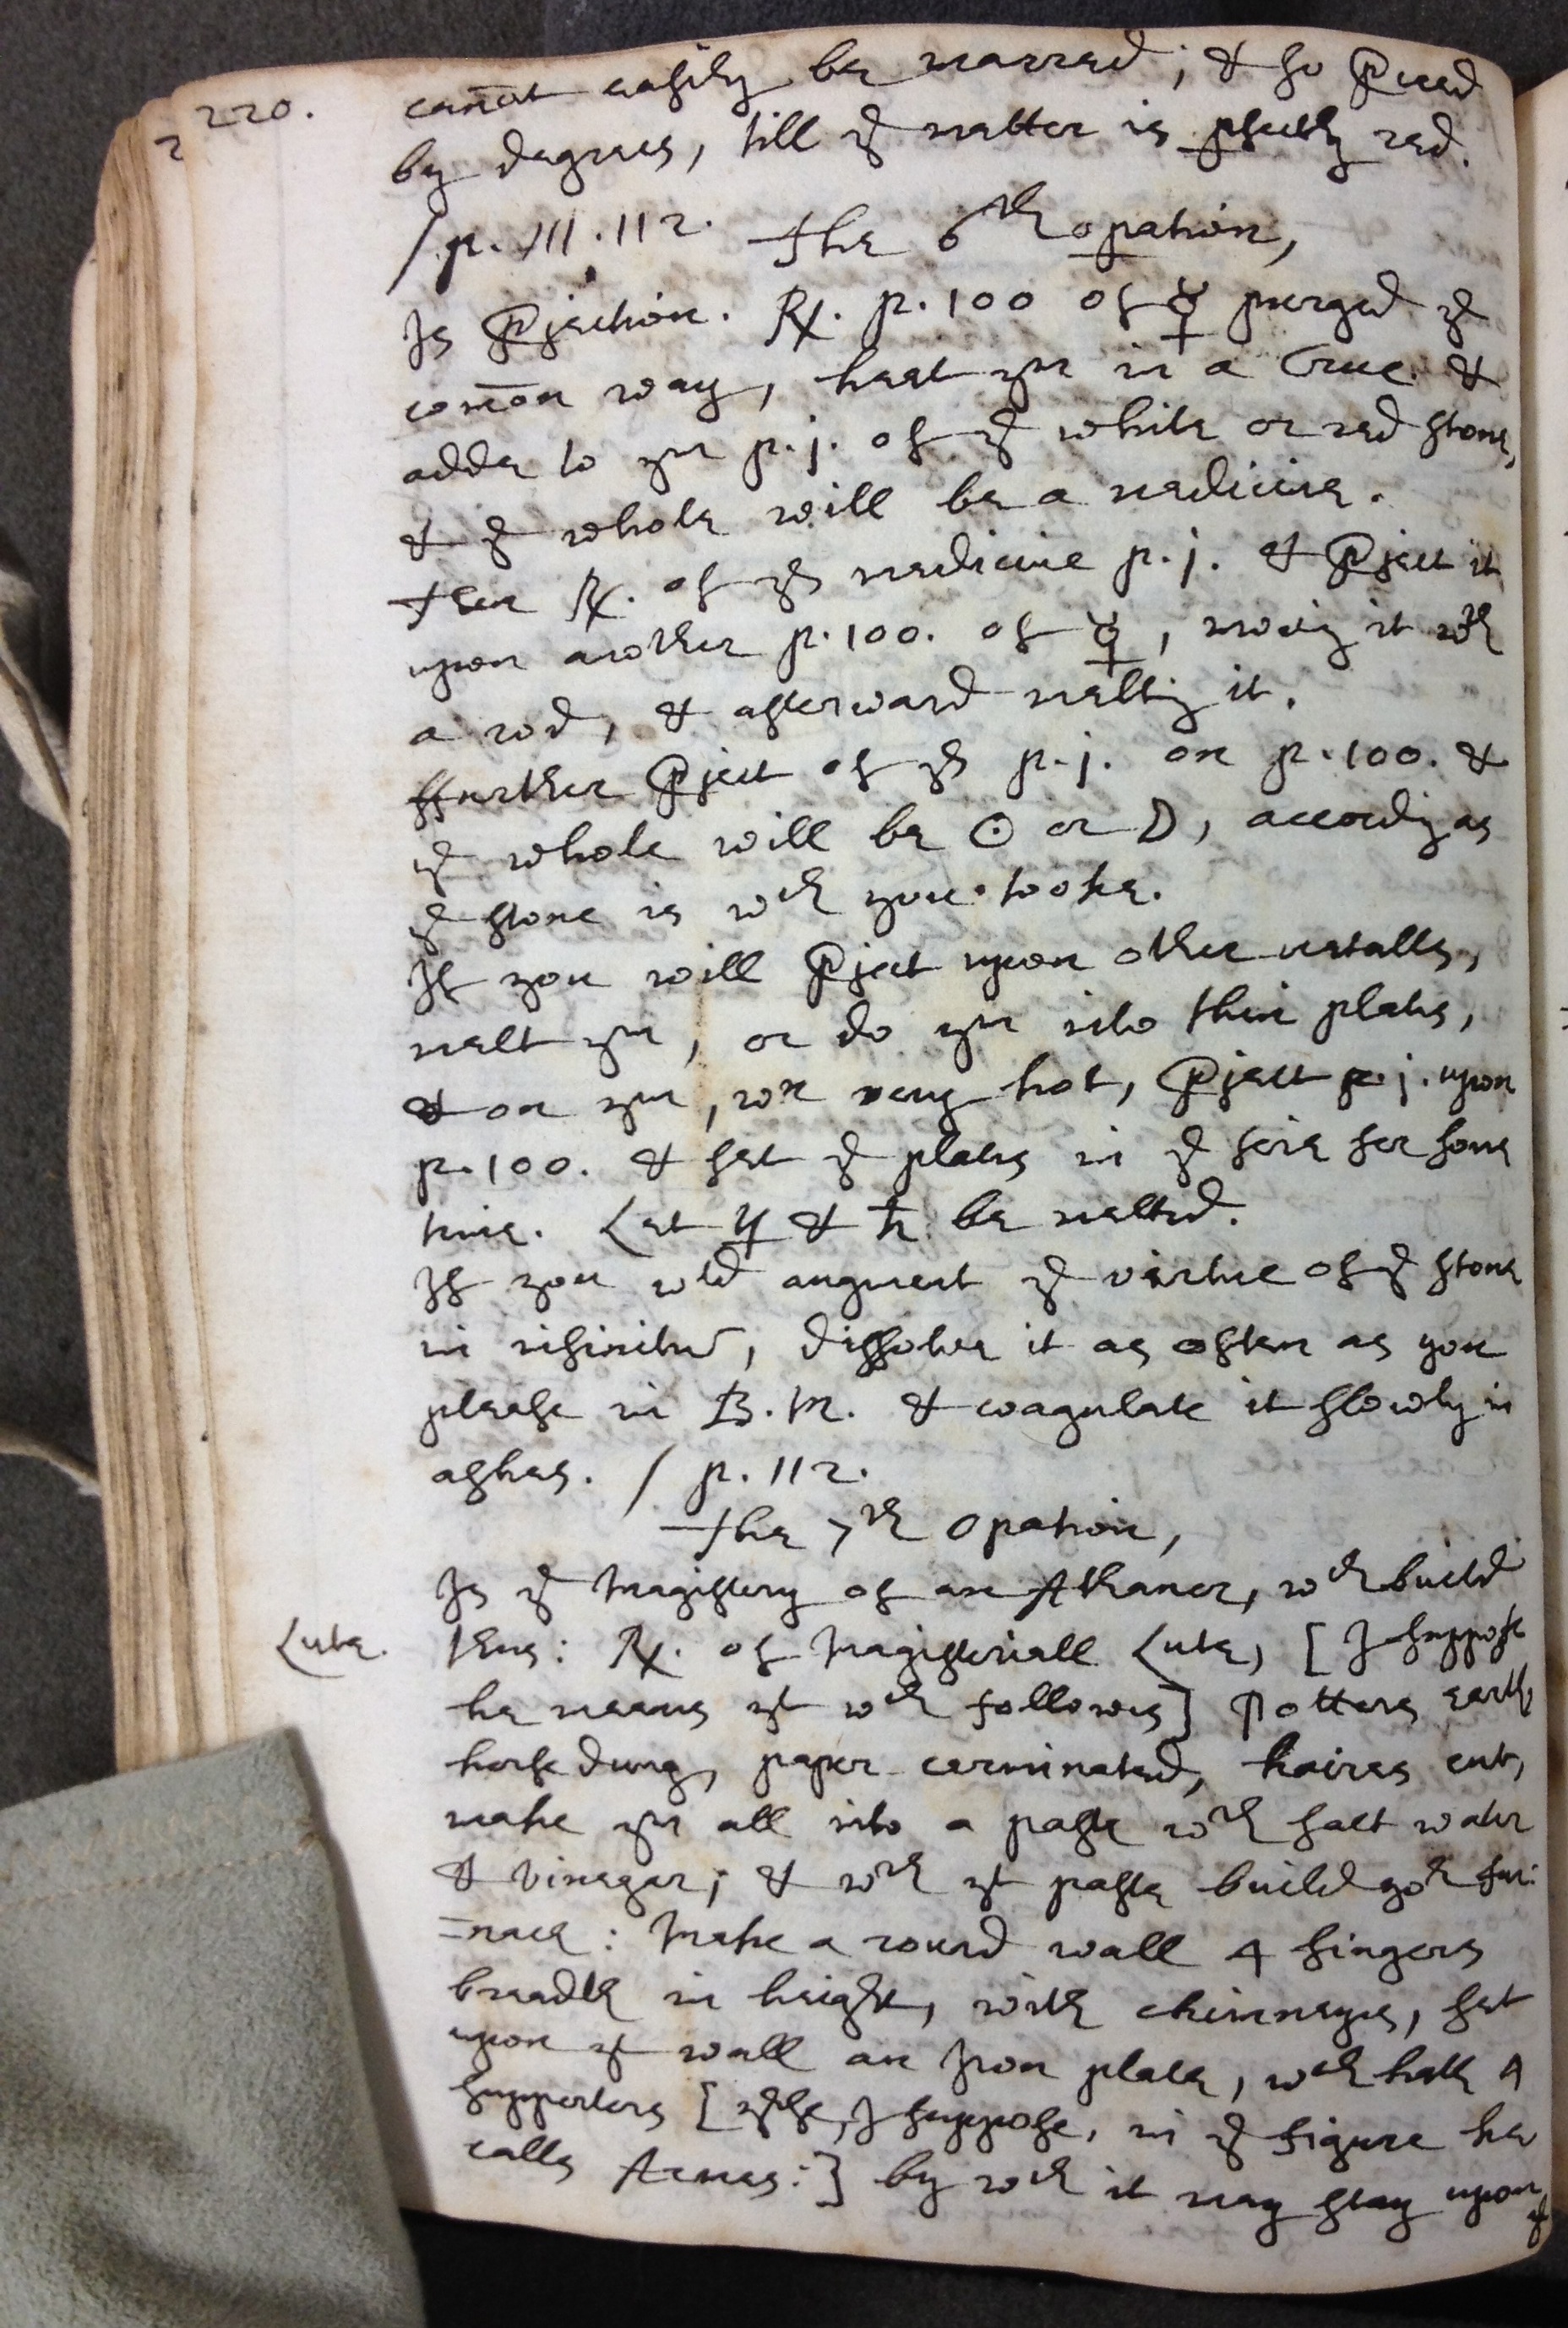 220.
cañot easily be marred; & so ꝓceed
by degrees, till yᵉ matter is ꝑfectly red.
/p. 111. 112. The 6ᵗʰ oꝑation,
Is ꝓjection. ℞. p. 100 of ☿ purged yᵉ
com̄on way, heat yᵐ in a Cruc. &
adde to yᵐ p. j. of yᵉ white or red stone,
& yᵉ whole will be a medicine.
Then ℞. of yˢ medicine p. j. & ꝓject it
upon another p. 100. of ☿, movīg it wᵗʰ
a rod, & afterward meltīg it.
ffurther ꝓject of yˢ p. j. on p. 100. &
yᵉ whole will be ☉ or ☽, accordīg as
yᵉ stone is wᶜʰ you tooke.
If you will ꝓject upon other metalls,
melt yᵐ, or do yᵐ into thin plates,
& on yᵐ, wⁿ very hot, ꝓject p. j. upon
p. 100. & set yᵉ plates in yᵉ fire for some
time. Let ♃ & ♄ be melted.
If you wᵈ augment yᵉ virtue of yᵉ stone
in infinitū, dissolve it as often as you
please in B. M. & coagulate it slowly in
ashes. / p. 112.
The 7ᵗʰ Opation,
Is yᵉ Magistery of an Athanor, wᶜʰ build
Lute. thus: ℞. of Magisteriall Lute, [I suppose
he means yᵗ wᶜʰ followes] Potters earth
horse dung, paper cerminated, haires cut,
make yᵐ all into a paste wᵗʰ salt water
& vinegar; & wᵗʰ yᵗ paste build yoʳ fur:
=nace: Make a round wall 4 fingers
breadth in height, with chimneyes, set
upon yᵗ wall an Iron plate, wᶜʰ hath 4
supporters [yᵉse, I suppose, in yᵉ figure he
calls Armes:] by wᶜʰ it may stay upon
yᵉ